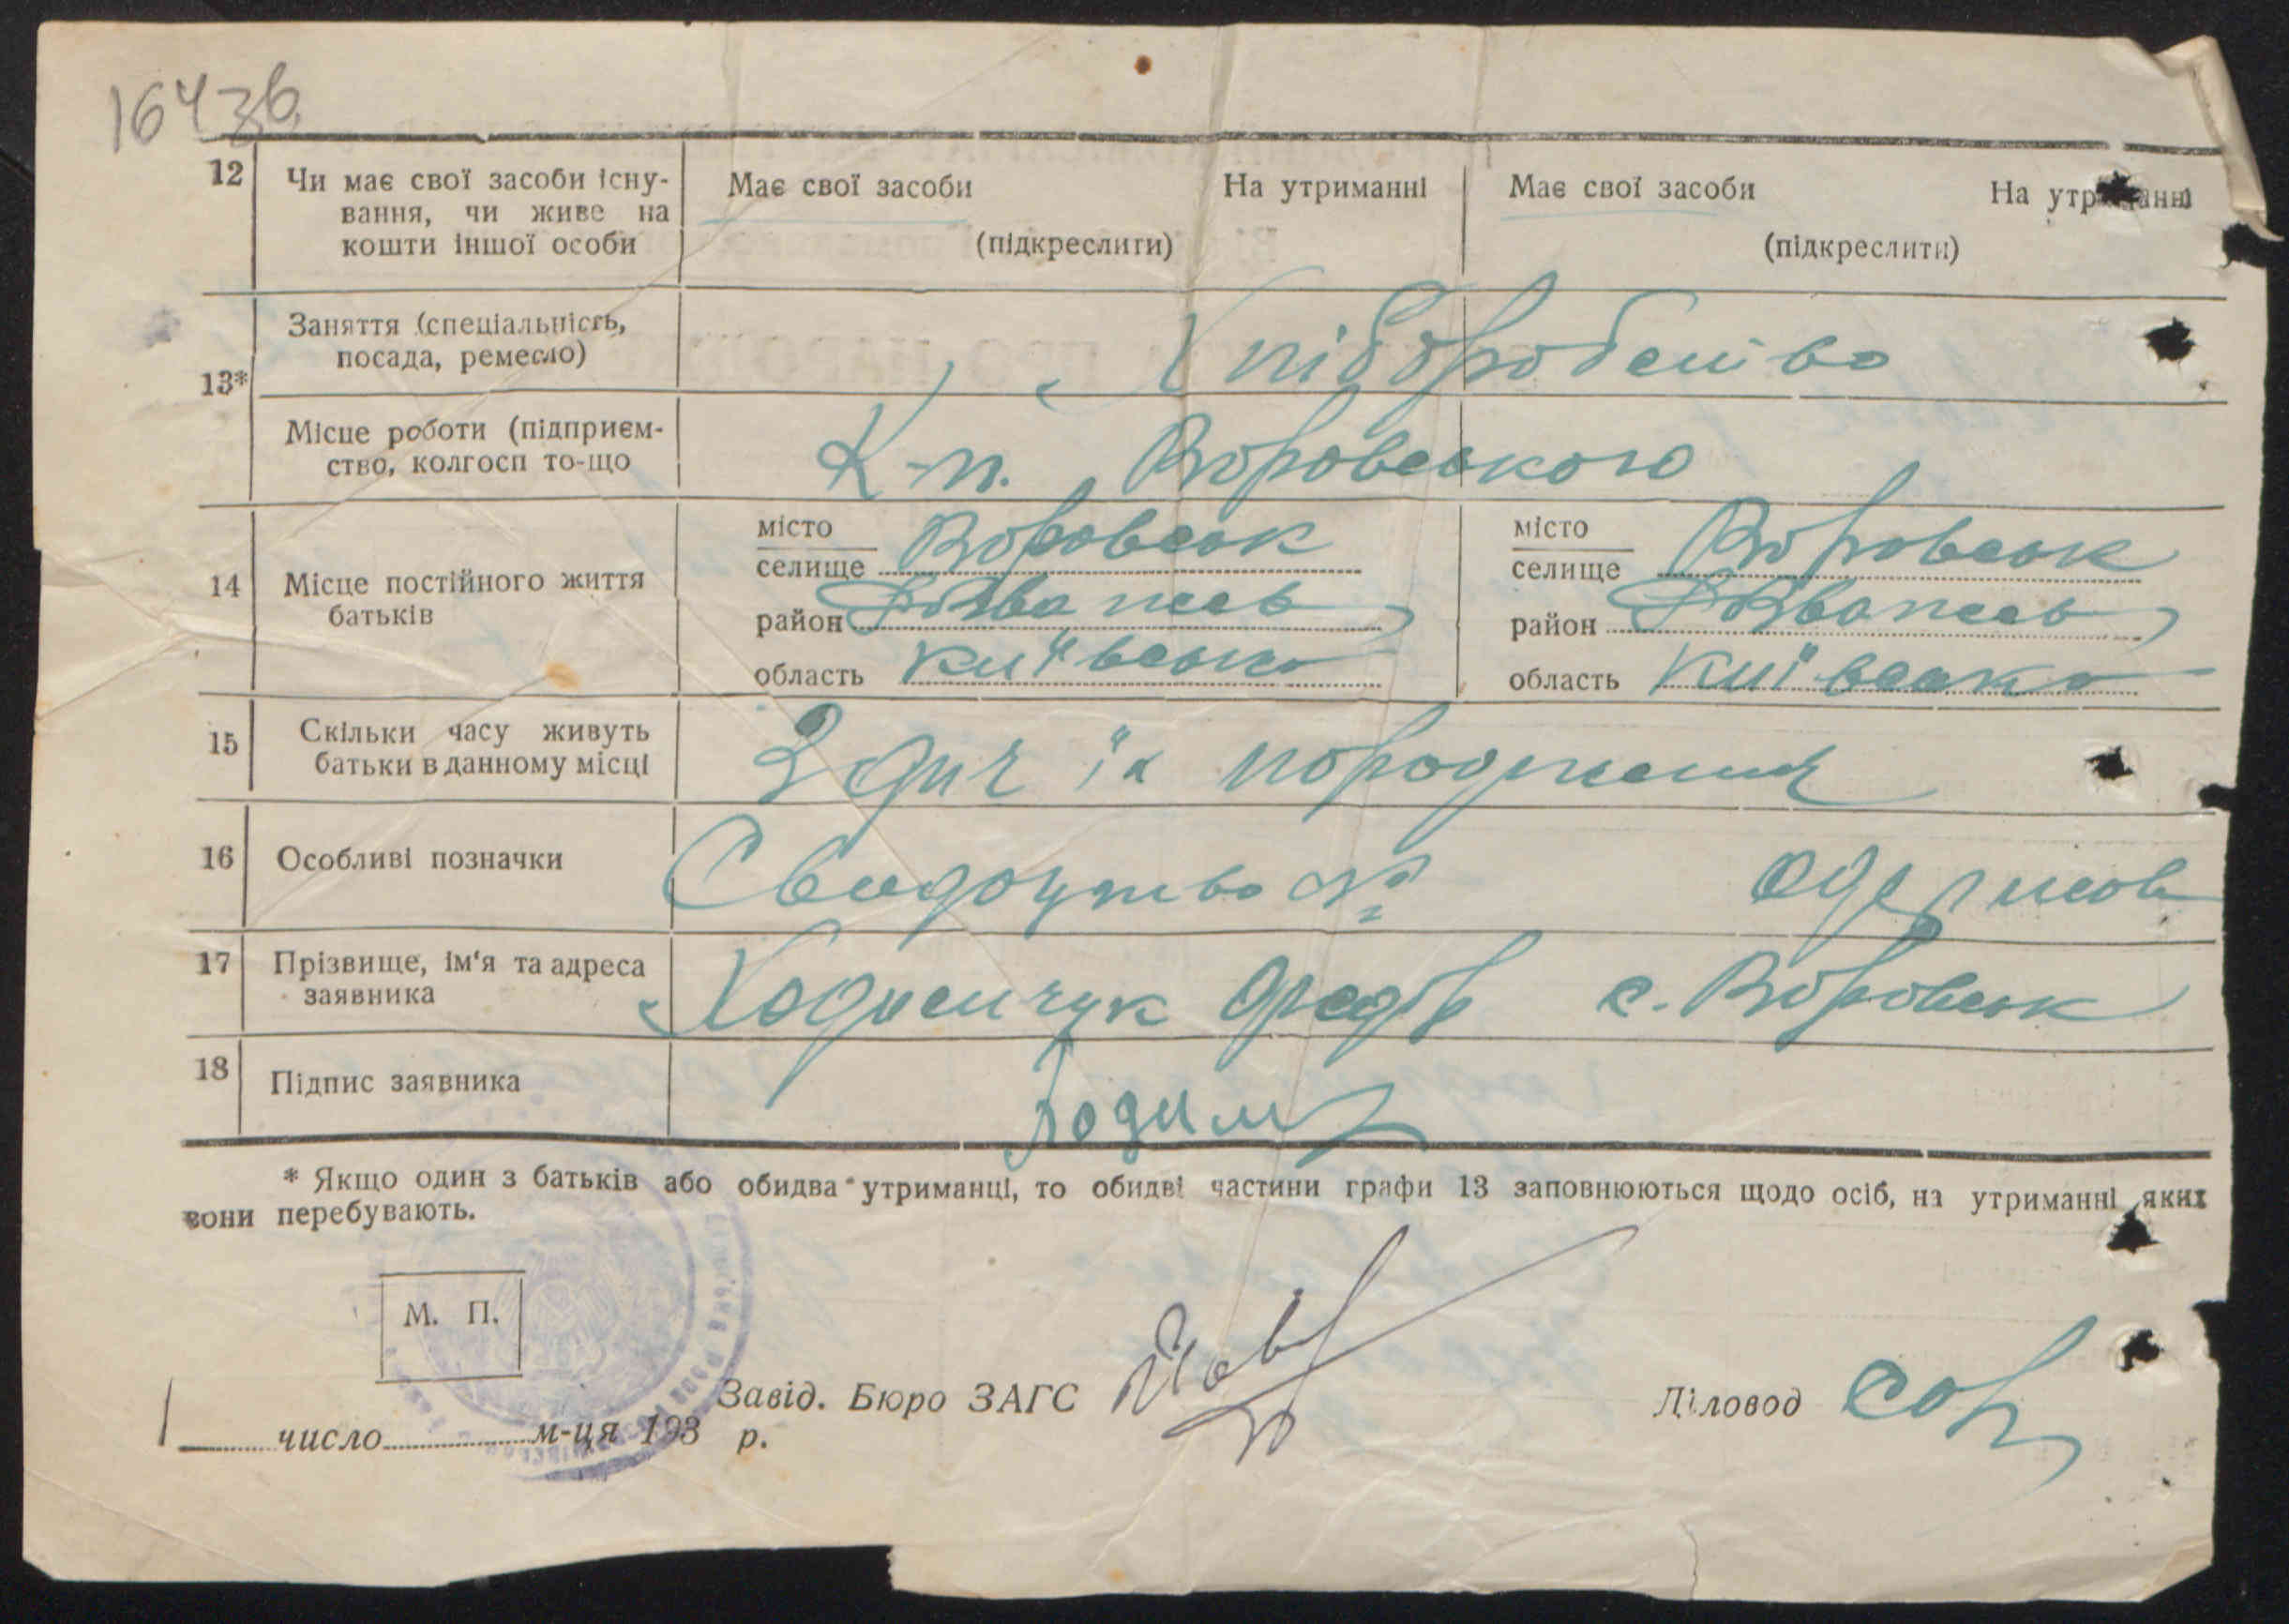 164зв
12 Чи має свої засоби існу-
вання, чи живе на
кошти іншої особи
Має свої засоби На утриманні
(підкреслити)
Має свої засоби На утриманні
(підкреслити)
13* Заняття (спеціальність,
посада, ремесло)
Хліборобство
Місце роботи (підприєм-
ство, колгосп то-що
К-п. Воровського
14 Місце постійного життя
батьків
місто
селище Воровськ
район Розважев
область Київська
місто
селище Воровськ
район Розважев
область Київська
15 Скільки часу живуть
батьки в данному місці
З дня їх породження
16 Особливі позначки
Свидоцтво № одержов
17 Прізвище, ім'я та адреса
заявника
Ходимчук Федір с. Воровськ
18 Підпис заявника
Ходимч
* Якщо один з батьків або обидва утриманці, то обидві частини графи 13 заповнюються щодо осіб, на утриманні яких
вони перебувають.
М. П.
Завід. Бюро ЗАГС
Діловод
число м-ця 193 р.